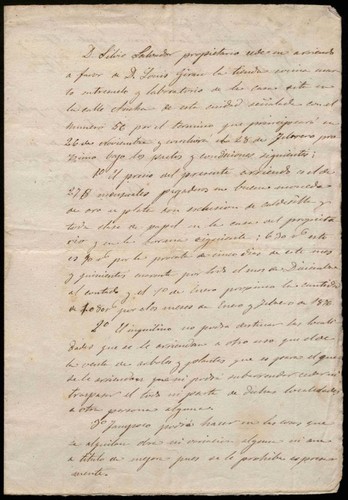 D. Silvio Salvador propietario cede en arriendo
a favor de D. Louis Giran la tienda cocina cuarto
entresuelo y laboratorio de la casa sita en
la calle Ancha de esta ciudad señalada con el
numero 56 por el termino que principiará en
26 de noviembre y concluira el 28 de Febrero pro
ximo bajo los pactos y condiciones siguientes:
1º El precio del presente arriendo es el de
mensuales pagadores en buena moneda
de oro o plata con esclusion de calderilla y
toda clase de papel en la casa del propieta
rio y en la forma siguiente:
por la prorrata de cinco dias de este mes
y quinientos cuarenta por todo el mes de Diciembre
al contado y el 1º de Enero proximo la cantidad
de por los meses de Enero y Febrero de 1876
2º El inquilino no podrá destinar las locali
dades que se le arriendan a otro uso que el de
la venta de y que es para el que
se le arriendan que ni podrá subarrendar ceder ni
traspasar el todo ni parte de dichas localidades
a otra persona alguna.
3º Tampoco podrá hacer en las cosas que
se alquilan obra ni variacion alguna ni aun
a titulo de mejora pues se le prohibe espresa
mente.